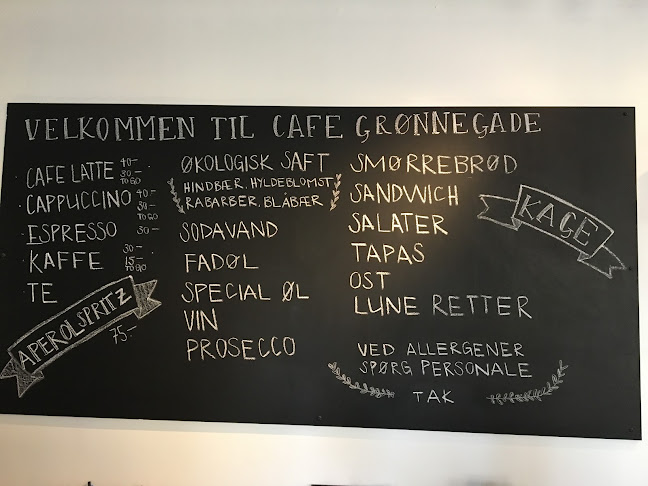 VELKOMMEN TIL CAFE GRØNNEGADE
CAFE LATTE 40-
30.-
TO GO
CAPPUCCINO 40-
30-
TO GO
ESPRESSO 30-
KAFFE 30-
15-
TO GO
TE
APEROL SPRITZ
75.-
ØKOLOGISK SAFT
HINDBÆR, HYLDEBLOMST
RABARBER, BLÅBÆR
SODAVAND
FADØL
SPECIAL ØL
VIN
PROSECCO
SMØRREBRØD
SANDWICH
SALATER
TAPAS
OST
LUNE RETTER
KAGE
VED ALLERGENER
SPØRG PERSONALE
TAK